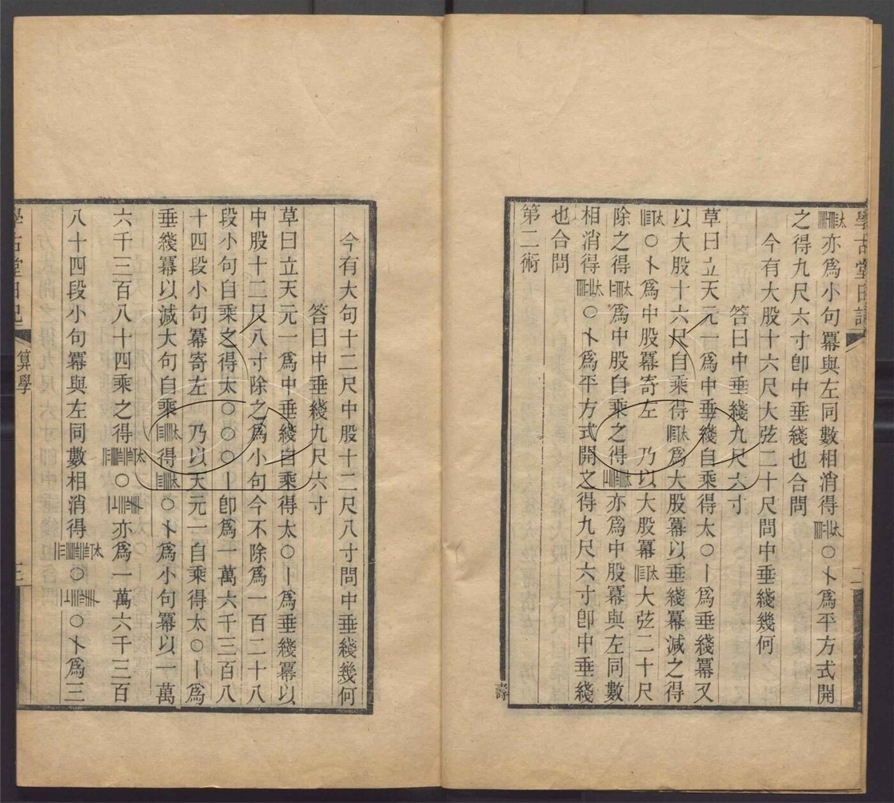 學古堂日記
二
太亦爲小句冪與左同數相消得太〇卜爲平方式開
之得九尺六寸卽中垂綫也合問
今有大股十六尺大弦二十尺問中垂綫幾何
答曰中垂綫九尺六寸
草曰立天元一爲中垂綫自乘得太〇〡爲垂綫冪又
以大股十六尺自乘得太爲大股冪以垂綫冪減之得
太〇卜爲中股冪寄左 乃以大股冪太大弦二十尺
除之得太爲中股自乘之得太亦爲中股冪與左同數
相消得太〇卜爲平方式開之得九尺六寸卽中垂綫
也合問
第二術
今有大句十二尺中股十二尺八寸問中垂綫幾何
答曰中垂綫九尺六寸
草曰立天元一爲中垂綫自乘得太〇〡爲垂綫冪以
中股十二尺八寸除之爲小句今不除爲一百二十八
段小句自乘之得太〇〇〇〡卽爲一萬六千三百八
十四段小句冪寄左 乃以天元一自乘得太〇〡爲
垂綫冪以減大句自乘太得太〇卜爲小句冪以一萬
六千三百八十四乘之得太〇亦爲一萬六千三百
八十四段小句冪與左同數相消得太〇〇卜爲三
學古堂日記
算學
三